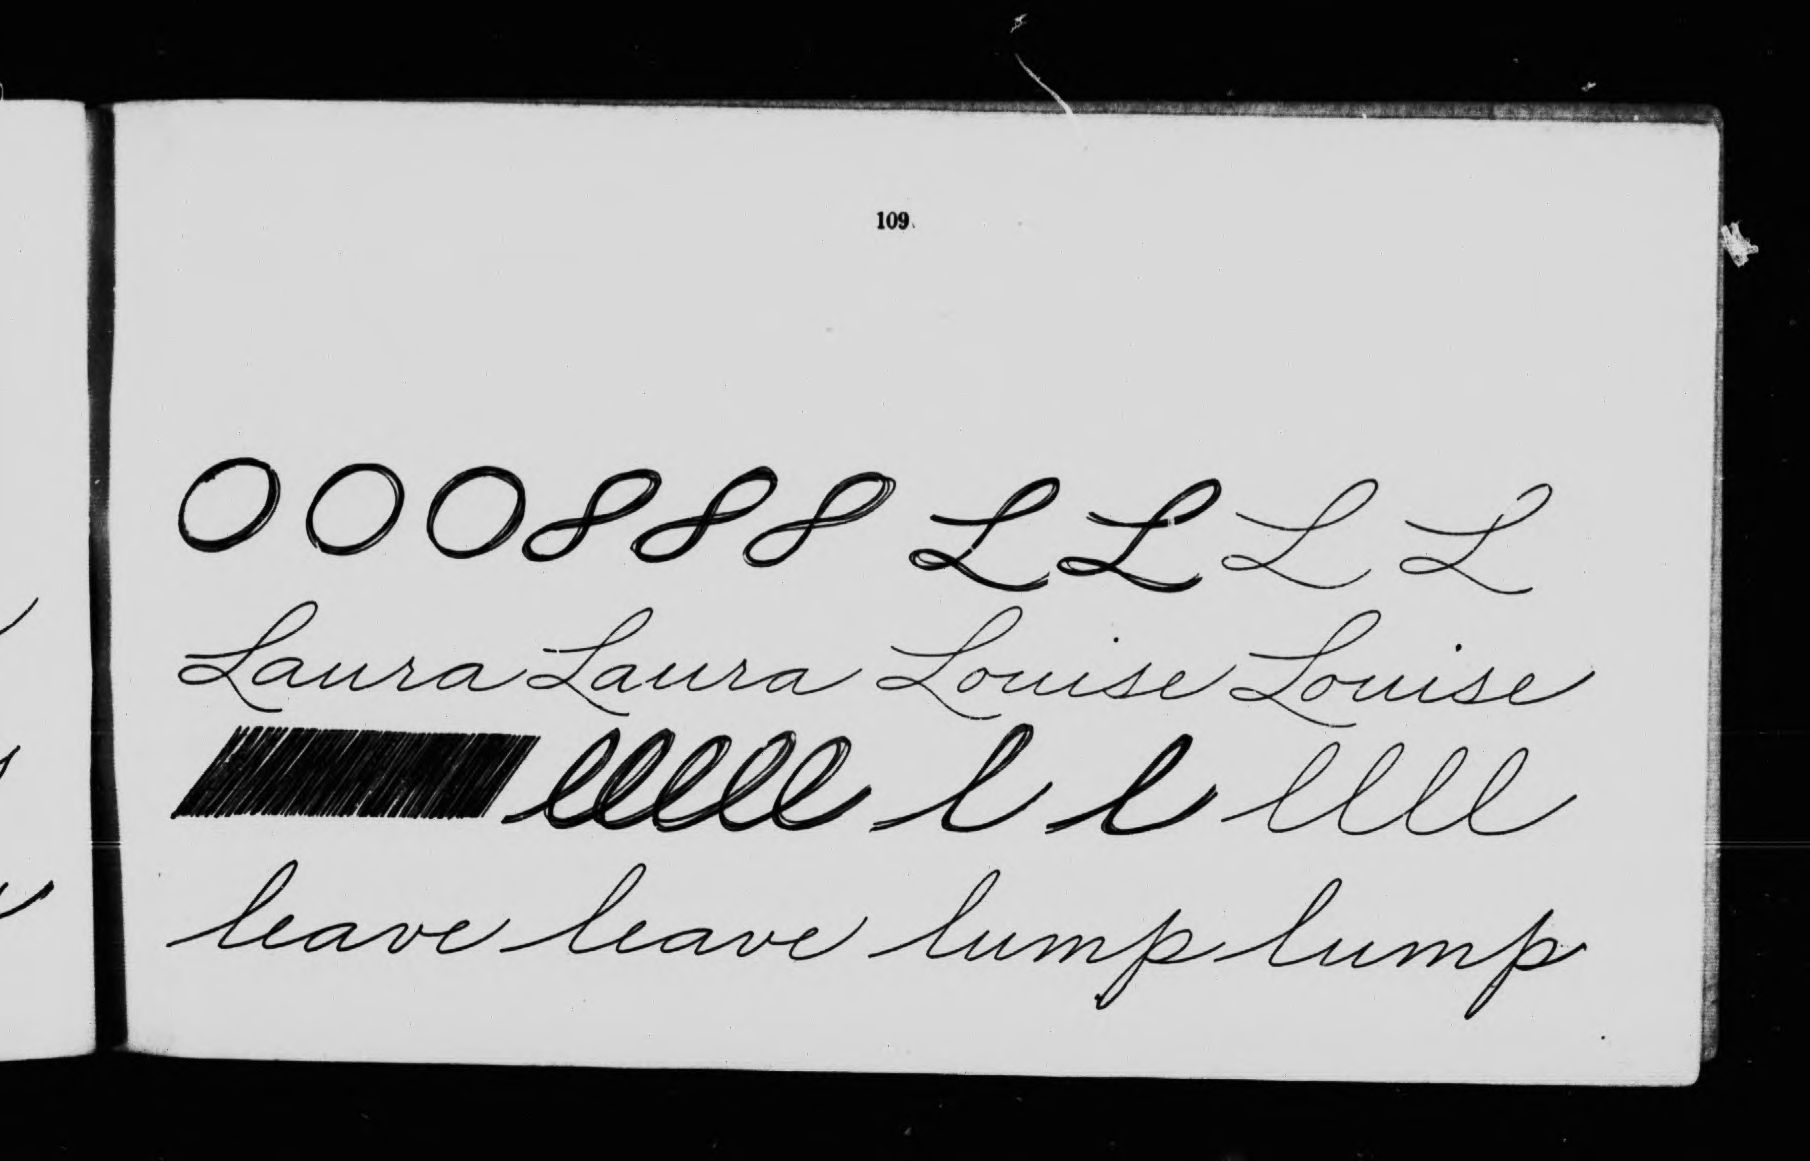 109
O O O 8 8 8 L L L L
Laura Laura Louise Louise
lllll l l llll
leave leave lump lump